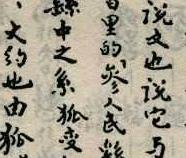 说文也说它与
百里的‘参人民
繇中之系狐变
、大约也由狐